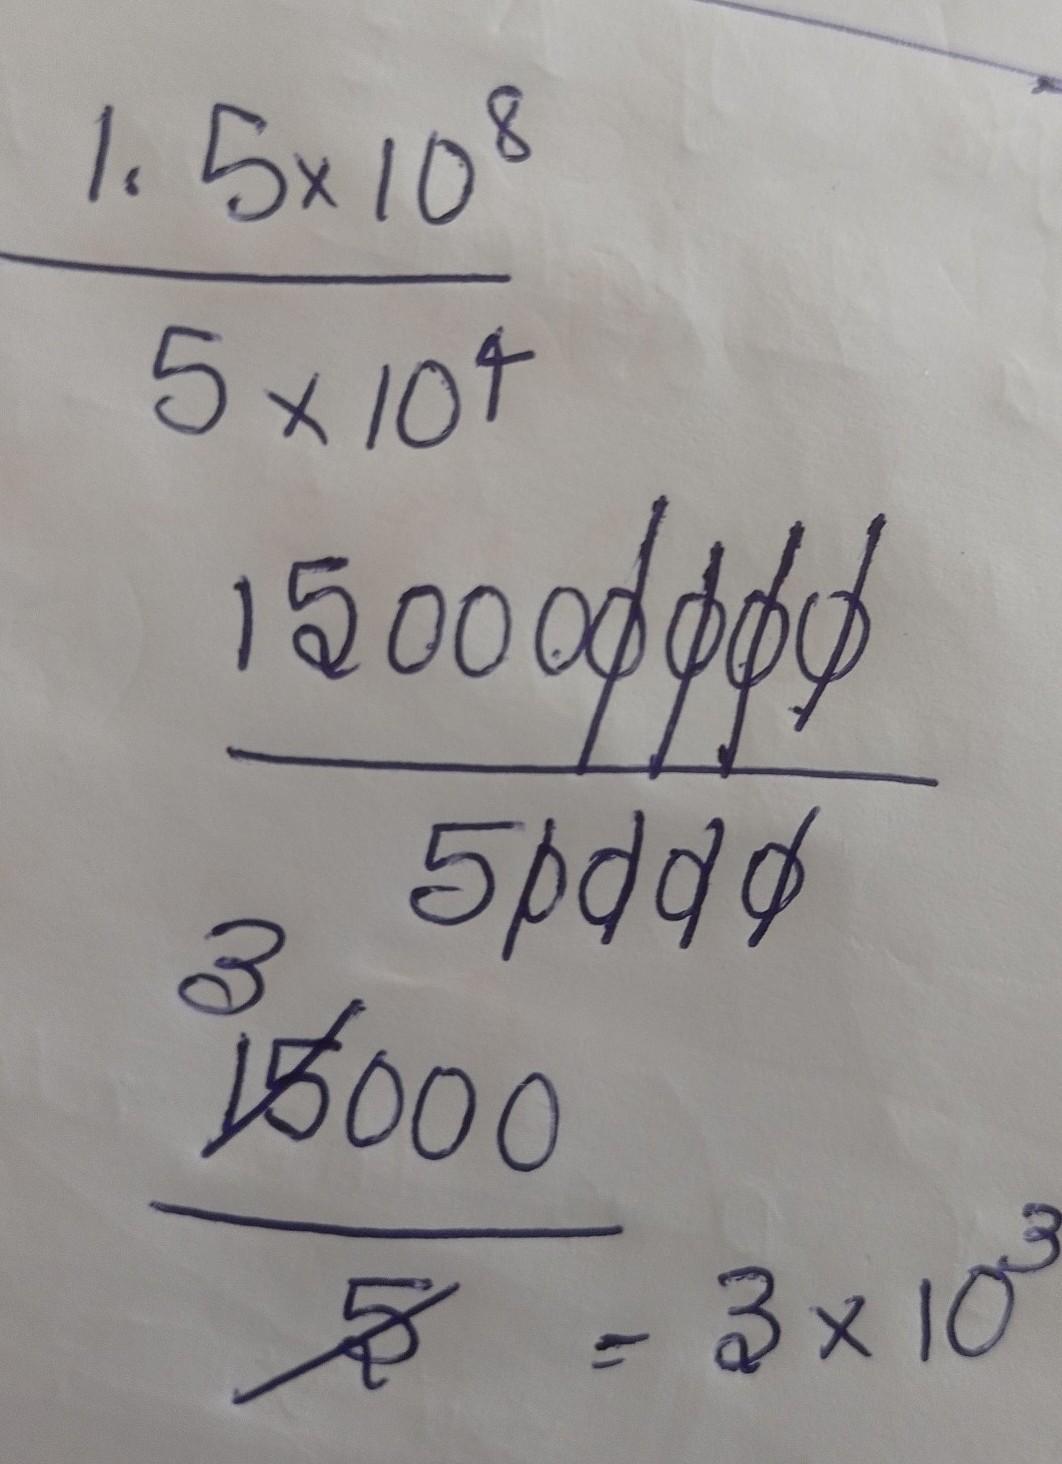 1.5×10⁸
5×10⁴
150000000
50000
3
15000
5 = 3×10³